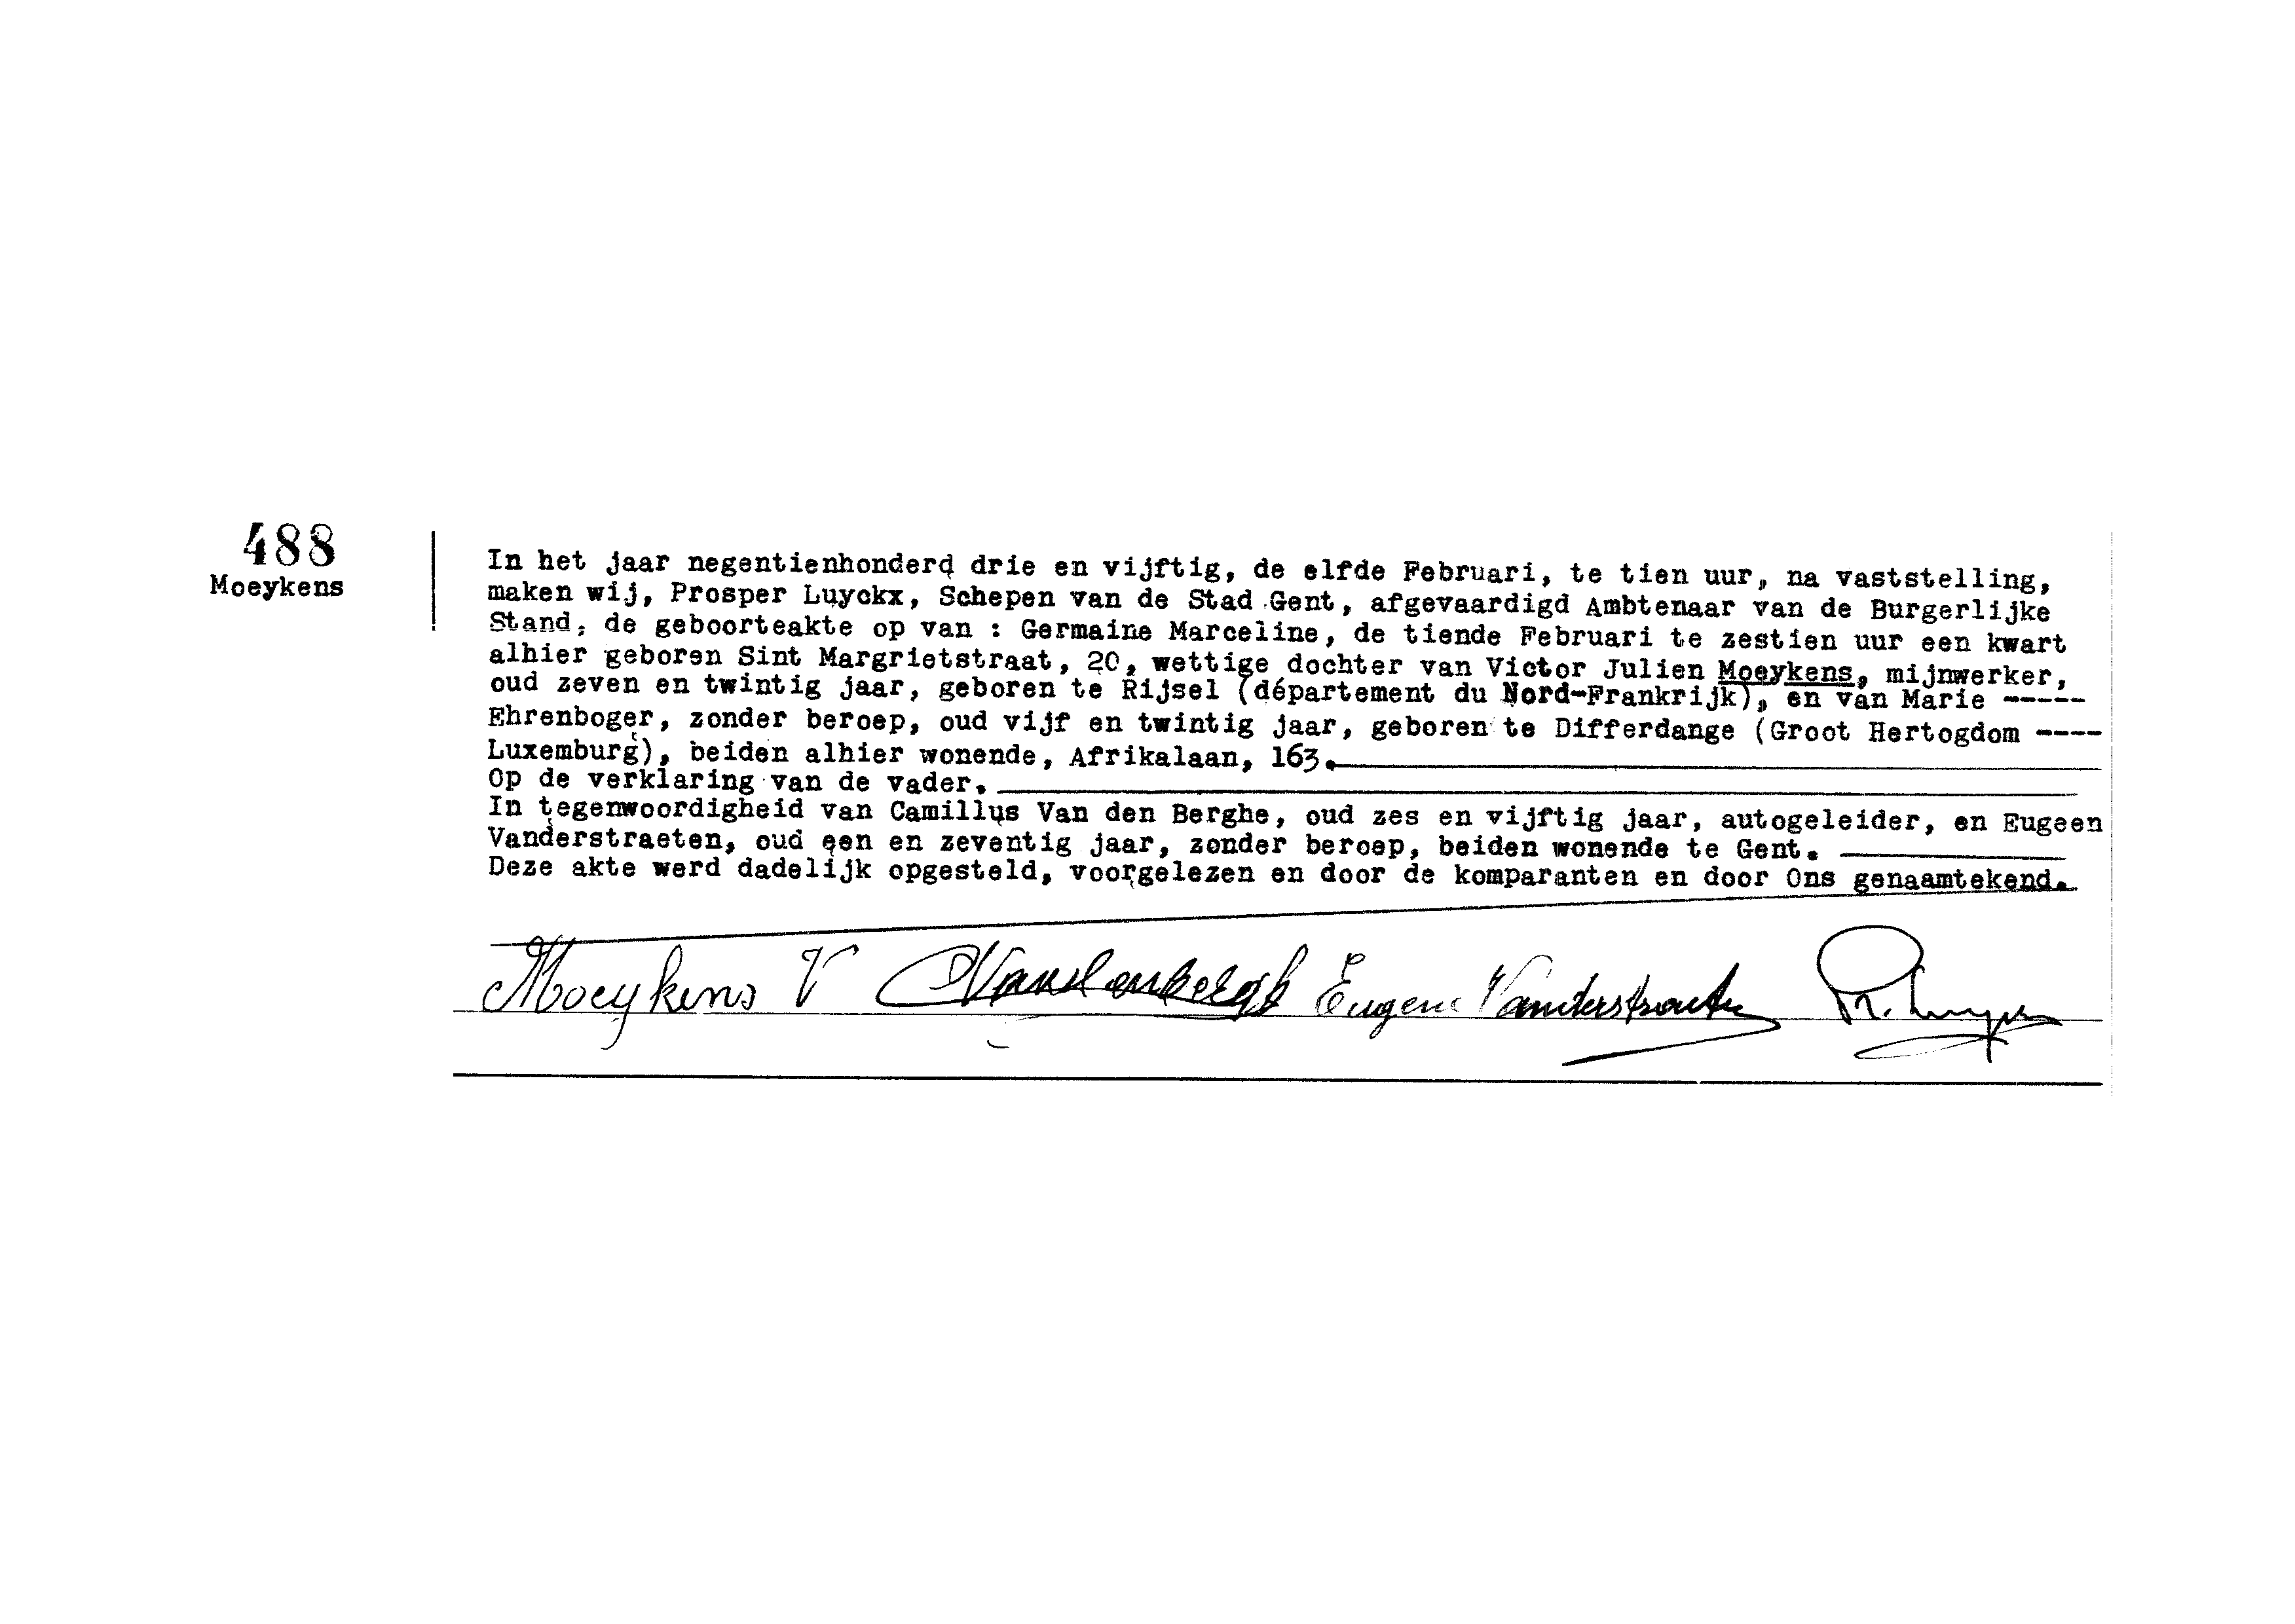 488
Moeykens
In het jaar negentienhonderd drie en vijftig, de elfde Februari, te tien uur, na vaststelling,
maken wij, Prosper Luyckx, Schepen van de Stad Gent, afgevaardigd Ambtenaar van de Burgerlijke
Stand, de geboorteakte op van : Germaine Marceline, de tiende Februari te zestien uur een kwart
alhier geboren Sint Margrietstraat, 20, wettige dochter van Victor Julien Moeykens, mijnwerker,
oud zeven en twintig jaar, geboren te Rijsel (département du Nord-Frankrijk), en van Marie -----
Ehrenboger, zonder beroep, oud vijf en twintig jaar, geboren te Differdange (Groot Hertogdom ----
Luxemburg), beiden alhier wonende, Afrikalaan, 163.
Op de verklaring van de vader.
In tegenwoordigheid van Camillus Van den Berghe, oud zes en vijftig jaar, autogeleider, en Eugeen
Vanderstraeten, oud een en zeventig jaar, zonder beroep, beiden wonende te Gent.
Deze akte werd dadelijk opgesteld, voorgelezen en door de komparanten en door Ons genaamtekend.
Moeykens V Eugene